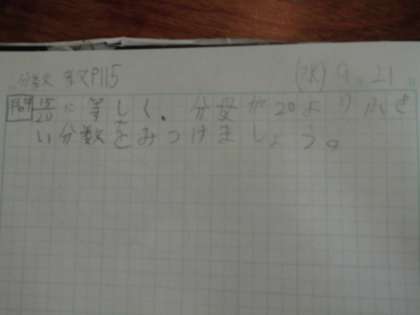 分数 算数P115 (水) 9. 21
問 15/20 に等しく、分母が20より小さ
い分数をみつけましょう。